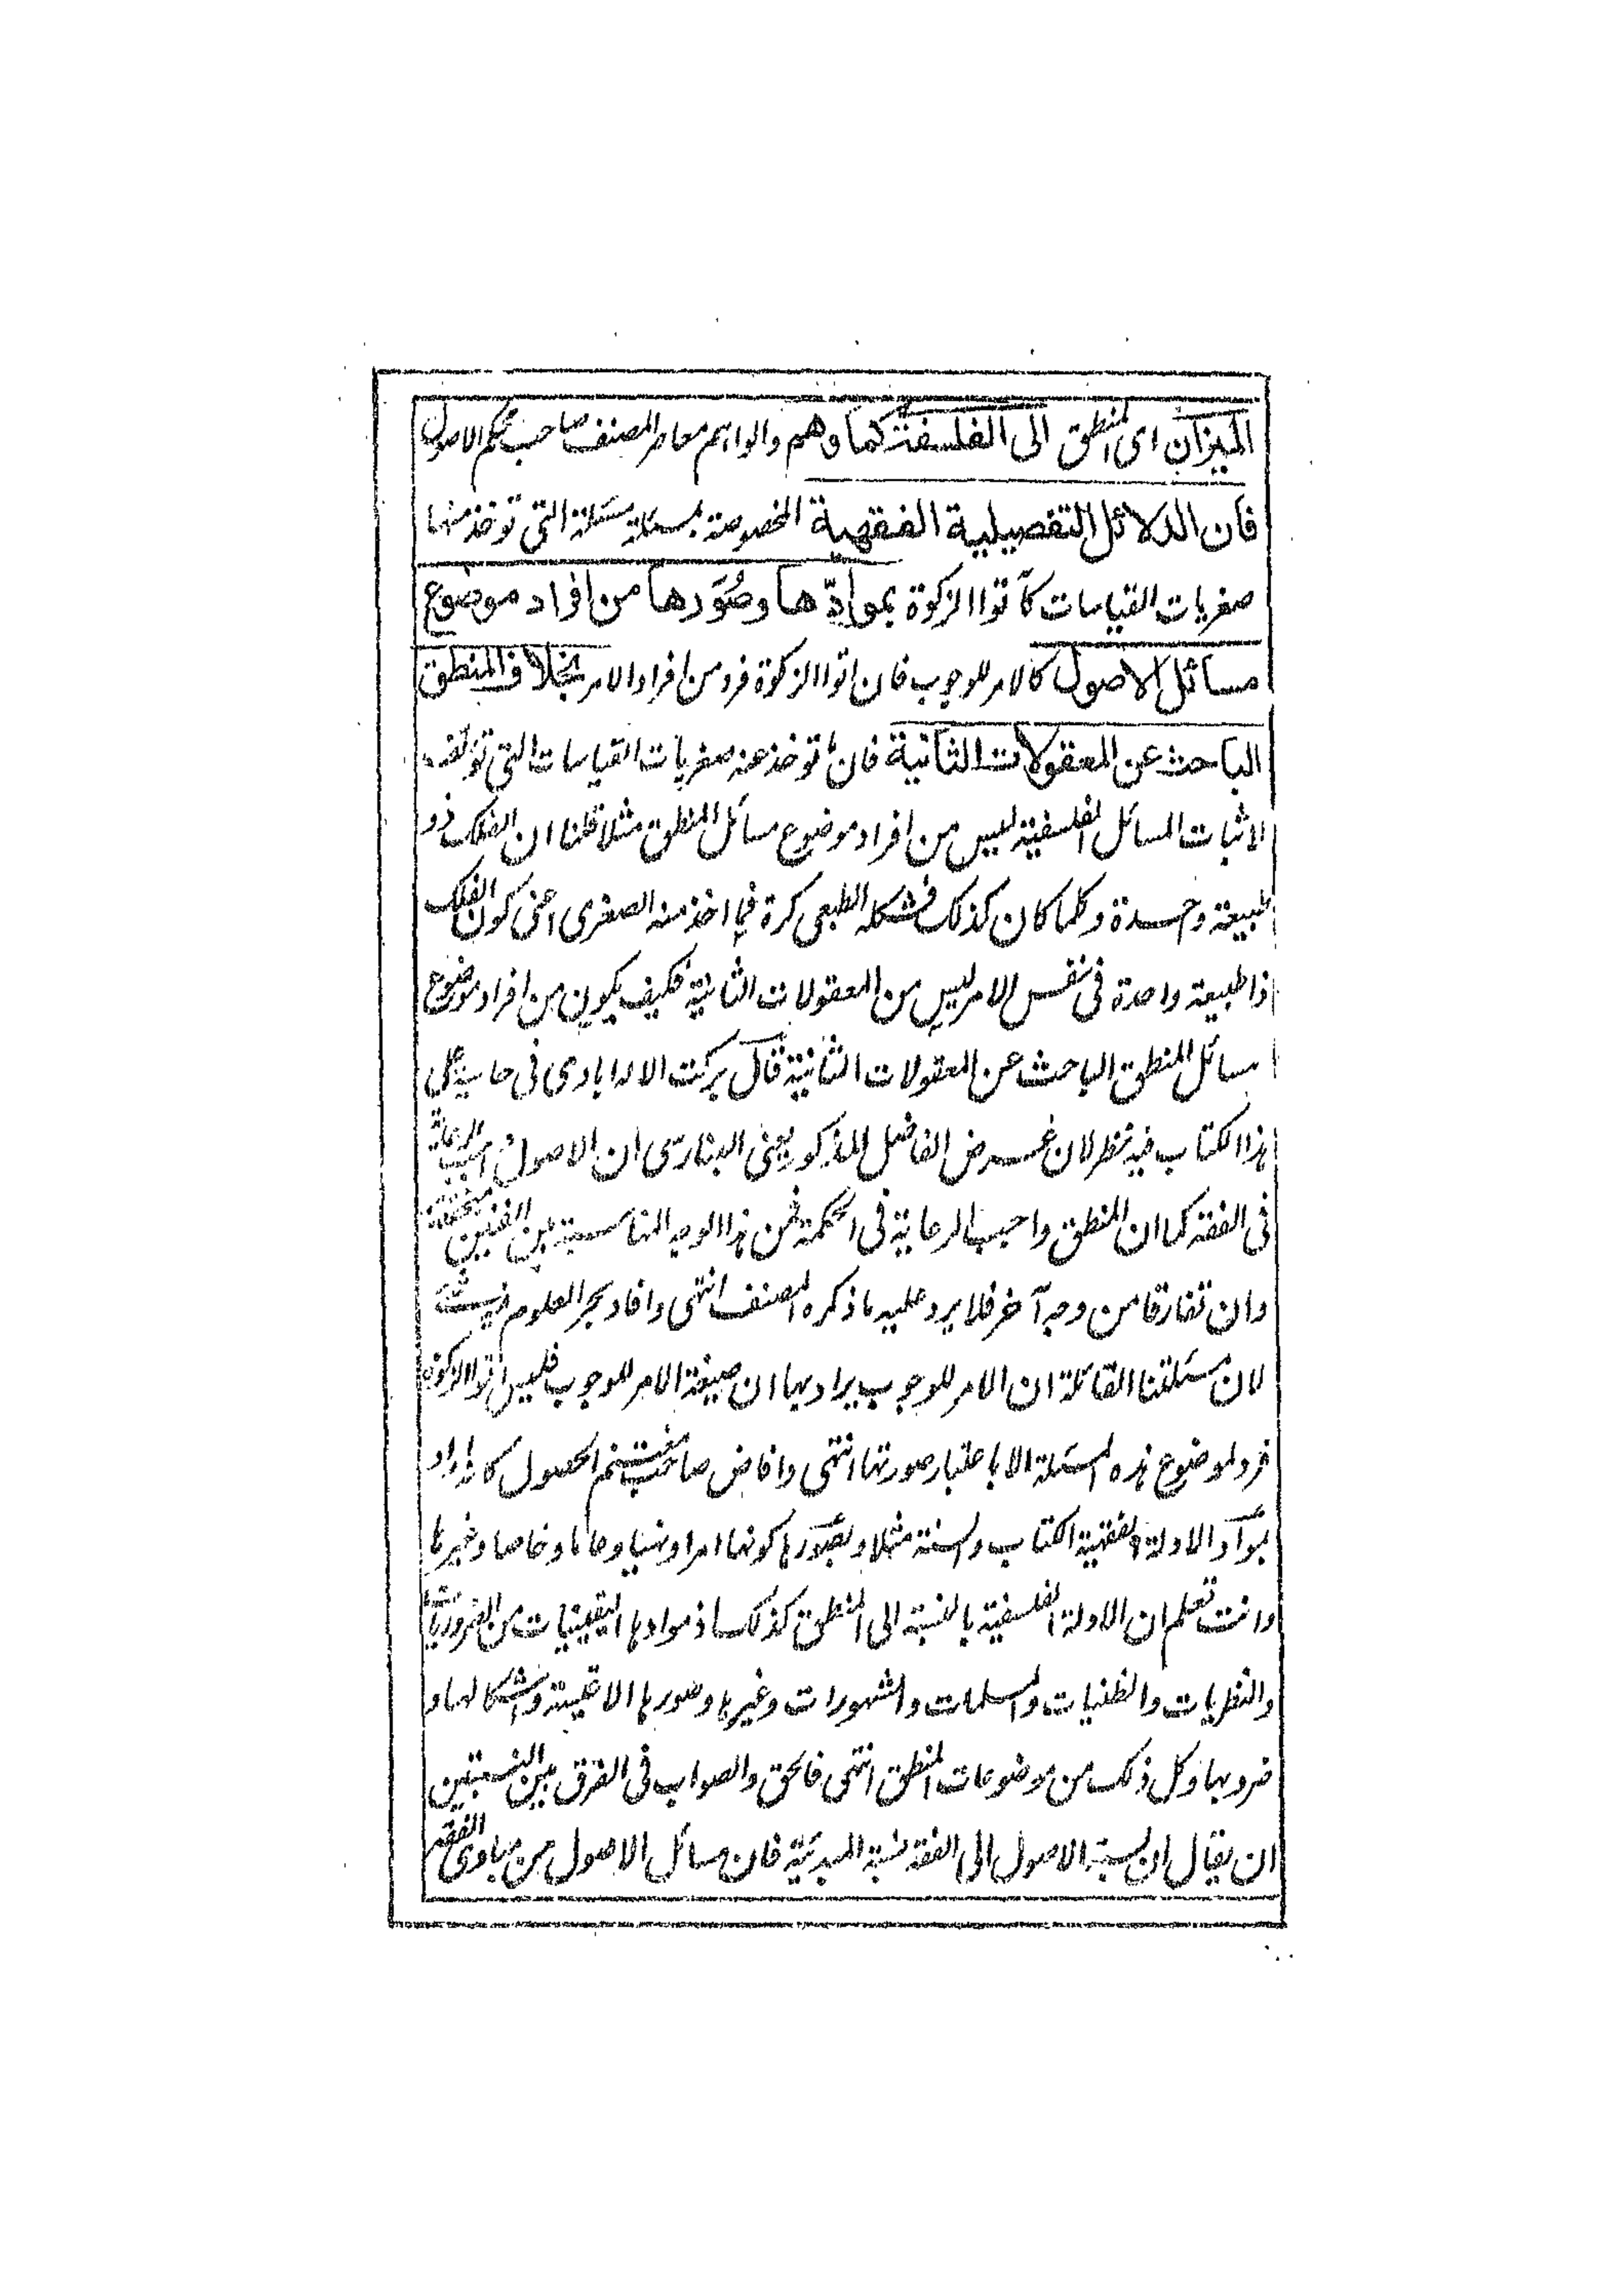 الميزان اى المنطق الى الفلسفة كما وهم والواهم معاصر المصنف صاحب محكم الاصول
فان الدلائل التفصيلية الفقهية المخصوصة بمسئلة مسئلة التى توخذ منها
صغريات القياسات كآتوا الزكوة بموادّها وصُوَرها من افراد موضوع
مسائل الاصول كالامر للوجوب فان اتوا الزكوة فرد من افراد الامر بخلاف المنطق
الباحث عن المعقولات الثانية فان ما توخذ عنه صغريات القياسات التى تؤلف
لاثبات المسائل الفلسفية ليس من افراد موضوع مسائل المنطق مثلا قلنا ان الفلك ذو
طبيعة وحدة وكلما كان كذلك فشكله الطبعى كرة فما اخذ منه الصغرى اعنى كون الفلك
ذا طبيعة واحدة فى نفس الامر ليس من المعقولات الثانية فكيف يكون من افراد موضوع
مسائل المنطق الباحث عن المعقولات الثانية قال بركت الاله ابادى فى حاشية على
هذا الكتاب فيه نظر لان غرض الفاضل المذكور يعنى البنارسى ان الاصول واجب الرعاية
فى الفقه كما ان المنطق واجب الرعاية فى الحكمة فمن هذا الوجه المناسبة بين الفنين متحققة
وان تفارقا من وجه آخر فلا يرد عليه ما ذكره المصنف انتهى وافاد بحر العلوم فيه شك
لان مسئلتنا القائلة ان الامر للوجوب يراد بها ان صيغة الامر للوجوب فليس اتوا الزكوة
فرد لموضوع هذه المسئلة الا باعتبار صورتها انتهى وافاض صاحب مغتنم الحصول كانه اراد
بموآد الادلة الفقهية الكتاب والسنة مثلا وبصُوَرها كونها امرا ونهيا وعاما وخاصا وغيرها
وانت تعلم ان الادلة الفلسفية بالنسبة الى المنطق كذلك اذ موادها اليقينيات من الضروريات
والنظريات والظنيات والمسلمات والمشهورات وغيرها وصورها الاقيسة واشكالها و
ضروبها وكل ذلك من موضوعات المنطق انتهى فالحق والصواب فى الفرق بين النسبتين
ان يقال ان نسبة الاصول الى الفقه نسبة المبدئية فان مسائل الاصول من مبادى الفقه